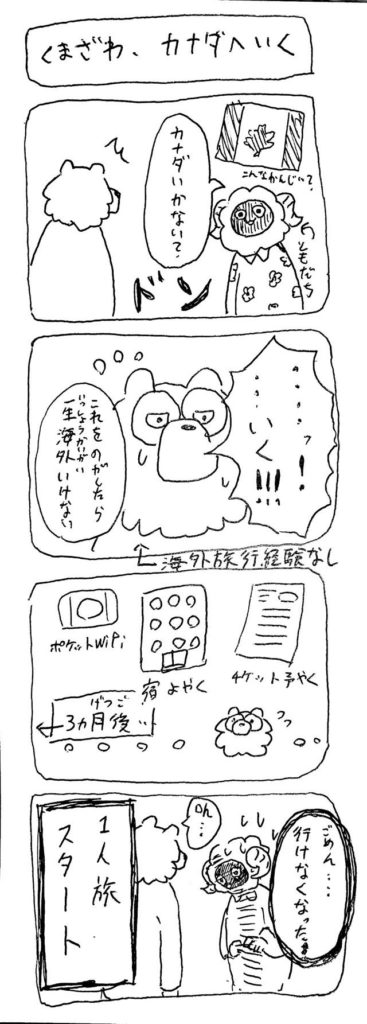 くまざわ、カナダへいく
こんなかんじぃ?
カナダいかない?
ともだち
ドン
・・・・・・っ!
いく!!!!
これをのがしたら
いっしょうかいがい
一生海外いけない
海外旅行経験なし
ポケットWiFi
宿よやく
チケット予やく
げつご
3ヵ月後・・
ごめん・・・・
行けなくなったま
Oh...
1人旅
スタート